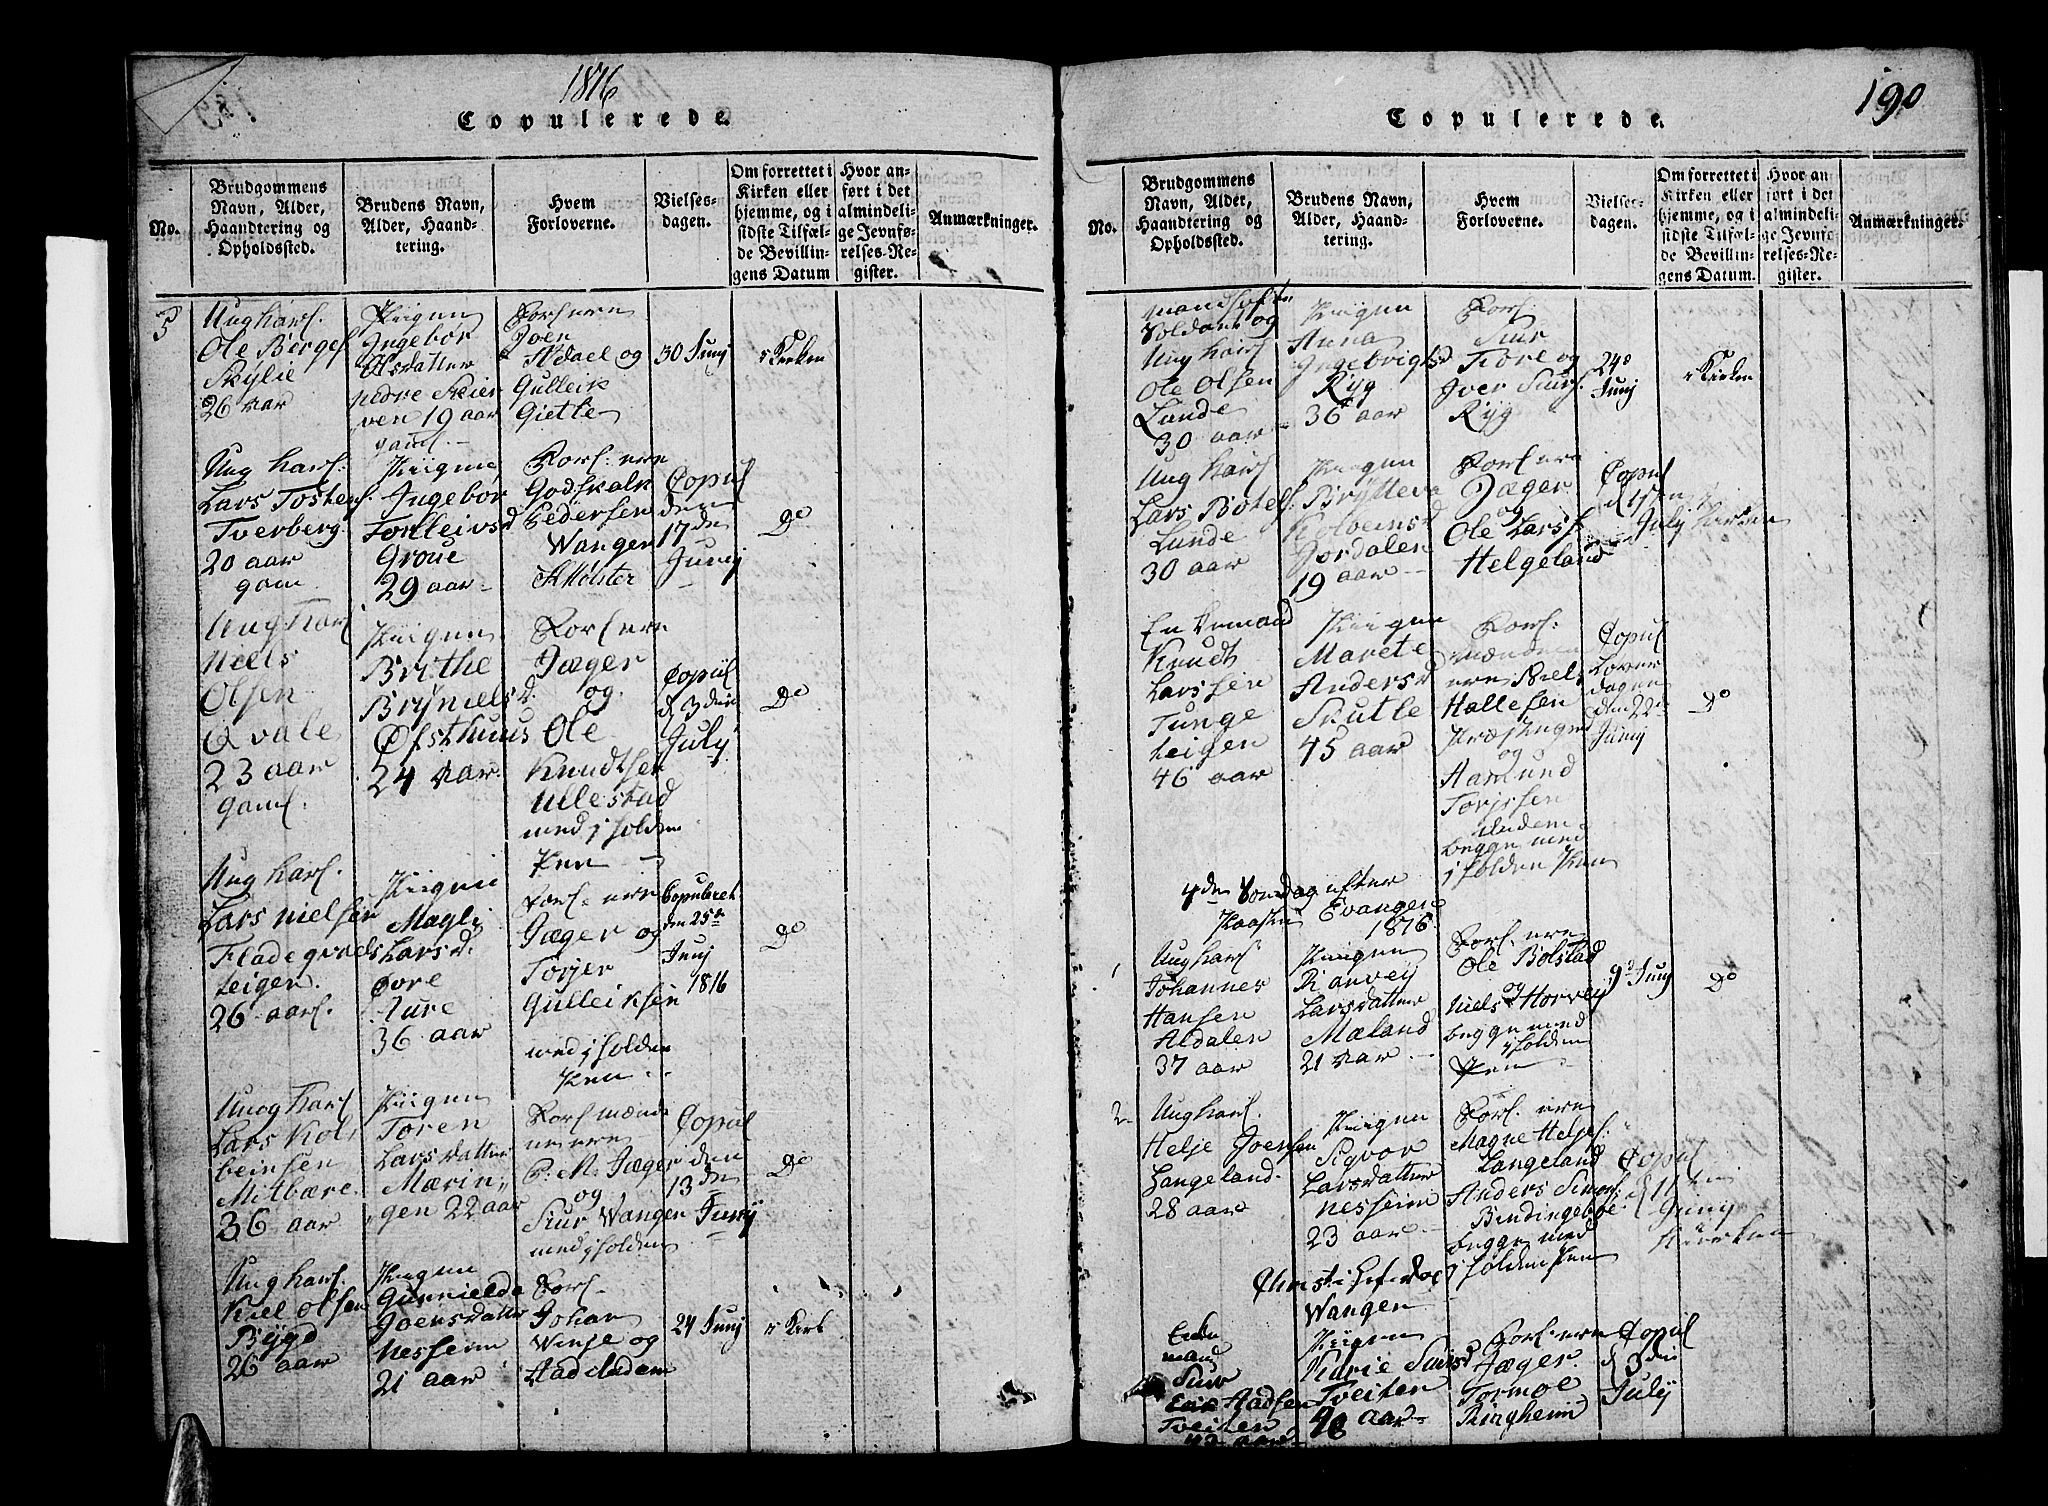 1816
Copulerede.
No.
Brudgommens
Navn, Alder,
Haandtering og
Opholdssted.
Brudens Navn,
Alder, Haand-
tering.
Hvem
Forloverne.
Vielses-
dagen.
Om forrettet i
Kirken eller
hjemme, og i
sidste Tilfæl-
de Bevillin-
gens Datum
Hvor an-
ført i det
almindeli-
ge Jevnfø-
relses-Re-
gister.
Anmærkninger.
5
Ung karl.
Ole Berges
Skÿlie
26 aar
Piigen
Ingebør
Olsdatter
nedre Skier
ven 19 aar
gaml.
Forl ere
Joen
Aldael og
Gulleik
Giette
30 Junj
i Kirken
Ung karl.
Lars Tosten
Tverberg.
20 aar
gam
Piigen
Ingebor
Torlleivsd
Groue
29 aar
Forl. ere
Godskalk
Pedersen
Wangen
Mølster
Copul
den
17 den
Junij
Do
Ung karl
Niels
Olsen
Qvale
23 aar
gaml.
Piigen
Brithe
Brÿnielsd.
Øfsthuus
24 aar.
Forl ere
Jæger
og
Ole
Knudtsen
Ullestad
med j holden
Pen
Copul
d 3 die
Julÿ
Do
Ung karl.
Lars Nielsen
Fladeqvals
teigen.
26 aarl.
Piigen
Magli
Larsd.
Øvre
Aure
36 aar
Forl. ere
Jæger og
Torjer
Gulleiksen
med j holden
Pen
Copuleret
den 25de
Junj
1816
Do
Unog karl
Lars Kol
beinsen
Mitbære
36 aar
Piigen
Toren
Larsdatter
Mærin
gen 22 aar
Forl mænd
ene ere
P. M. Jæger
og
Siur Wangen
med j holden
Copul
den
13 den
Junij
Do
Ung karl.
Kiel Olsen
Bÿgd
26 aar
Piigen
Gunnielda
Joensdatter
Nesseim
21 aar
Forl
Johan
Winje og
Aad
24 Junj
i Kirk
190
Copulerede.
No.
Brudgommens
Navn, Alder,
Haandtering og
Opholdssted.
Brudens Navn,
Alder, Haand-
tering.
Hvem
Forloverne.
Vielses-
dagen.
Om forrettet i
Kirken eller
hjemme, og i
sidste Tilfæl-
de Bevillin-
gens Datum.
Hvor an-
ført i det
almindeli-
ge Jevnfø-
relses-Re-
gister.
Anmærkninger.
Soldat og
Ung karl
Ole Olsen
Lunde
30 aar
Piigen
Anna
Ingebrigtsd
Ryg
36 aar
Forl
Siur
Tore og
Jver Siurs.
Rÿg
24de
Junj
i Kirken
Ung karl
Lars Botels.
Lunde
30 aar
Piigen
Brÿtteva
Kolbeinsd
Jordalen
19 aar
Forl ere
Jæger
og
Ole Larss
Helgeland
Copul
d 17 den
Julj
Kirken
Enkemand
Knudt
Larssen
Tunge
teigen
46 aar
Piigen
Marete
Andersd
Skutle
45 aar
Forl.
mændene
ere Niels
Hallesen
Præstegrd
og
Aamund
Torjssen
begge med
j holden Pen
Copul
Løver
dagen
den 22de
Junij
Do
4de Søndag efter
Paaske Evangen
1816.
1
Ung karl
Johannes
Hansen
Aldalen
37 aar
Piigen
Ranvey
Larsdatter
Mæland
21 aar
Forl. ere
Ole Bolstad
og
Niels Horvey
begge med
j holden
Pen
9de Junj
Do
2
Ung karl.
Helje Joensen
Langeland.
28 aar
Piigen
Sigvor
Larsdatter
Nesseim
23 aar
Forl. ere
Magne Heljes.
Langeland
Anders Simons.
Bindingeboe
begge med
j holden Pen
Copul
d 11 ten
Junij
Kirken
Christi Hefardag
Wangen
Enke
mand
Siur
Aadsen
Tveiten
aar
Piigen
Marie Siursd
Tveiten
aar
Forl. ere
Jæger.
Tormoe
Ringheim
Copul
d 3 die
Julÿ